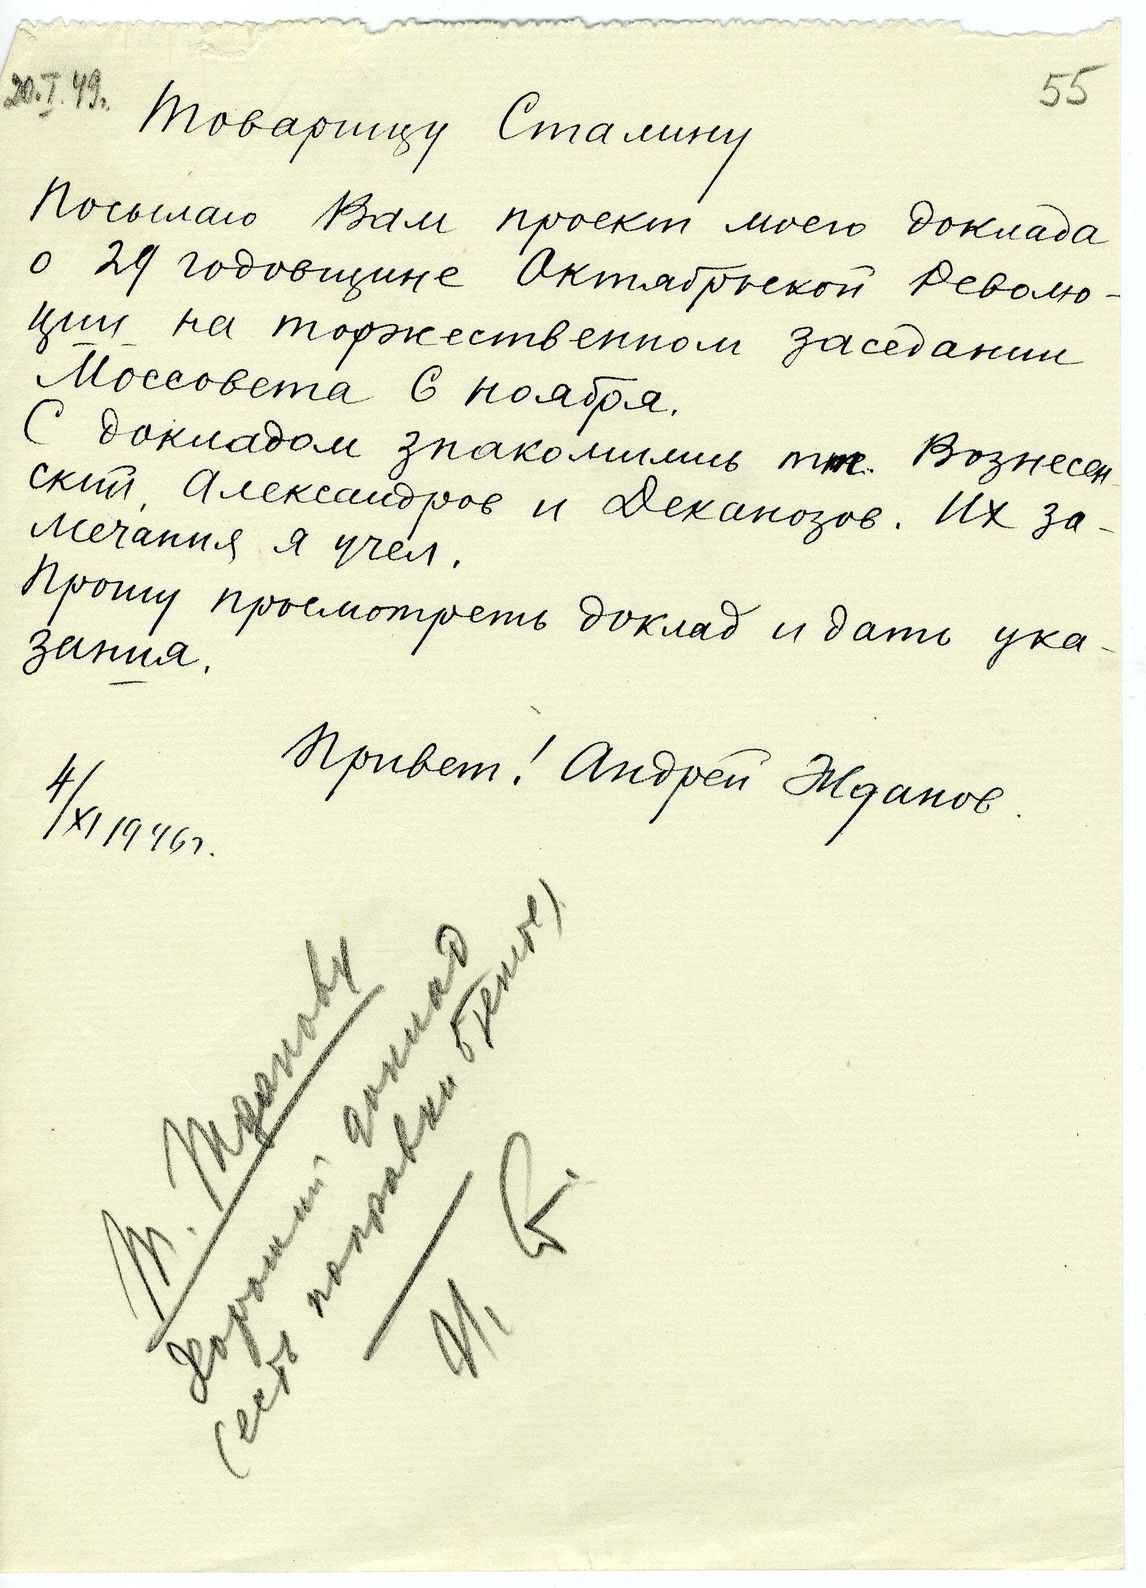 20.I.49.
55
Товарищу Сталину
Посылаю Вам проект моего доклада
о 29 годовщине Октябрьской Револю-
ции на торжественном заседании
Моссовета 6 ноября.
С докладом знакомились тт. Вознесен
ский, Александров и Деканозов. Их за-
мечания я учел.
Прошу просмотреть доклад и дать ука-
зания.
Привет! Андрей Жданов.
4/XI 1946г.
Т. Жданову
Хороший доклад
(есть поправки в тексте)
И. Ст.